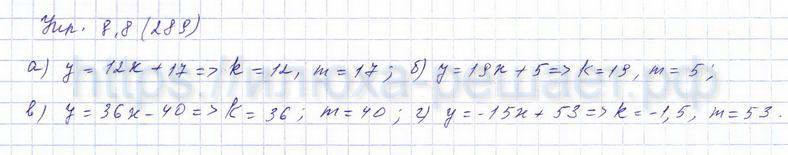 Упр. 8,8 (289)
а) y = 12x + 17 => k = 12, m = 17; б) y = 19x + 5 => k = 19, m = 5;
в) y = 36x - 40 => k = 36; m = 40; г) y = -15x + 53 => k = -1,5, m = 53.
https://илюха-решает.рф